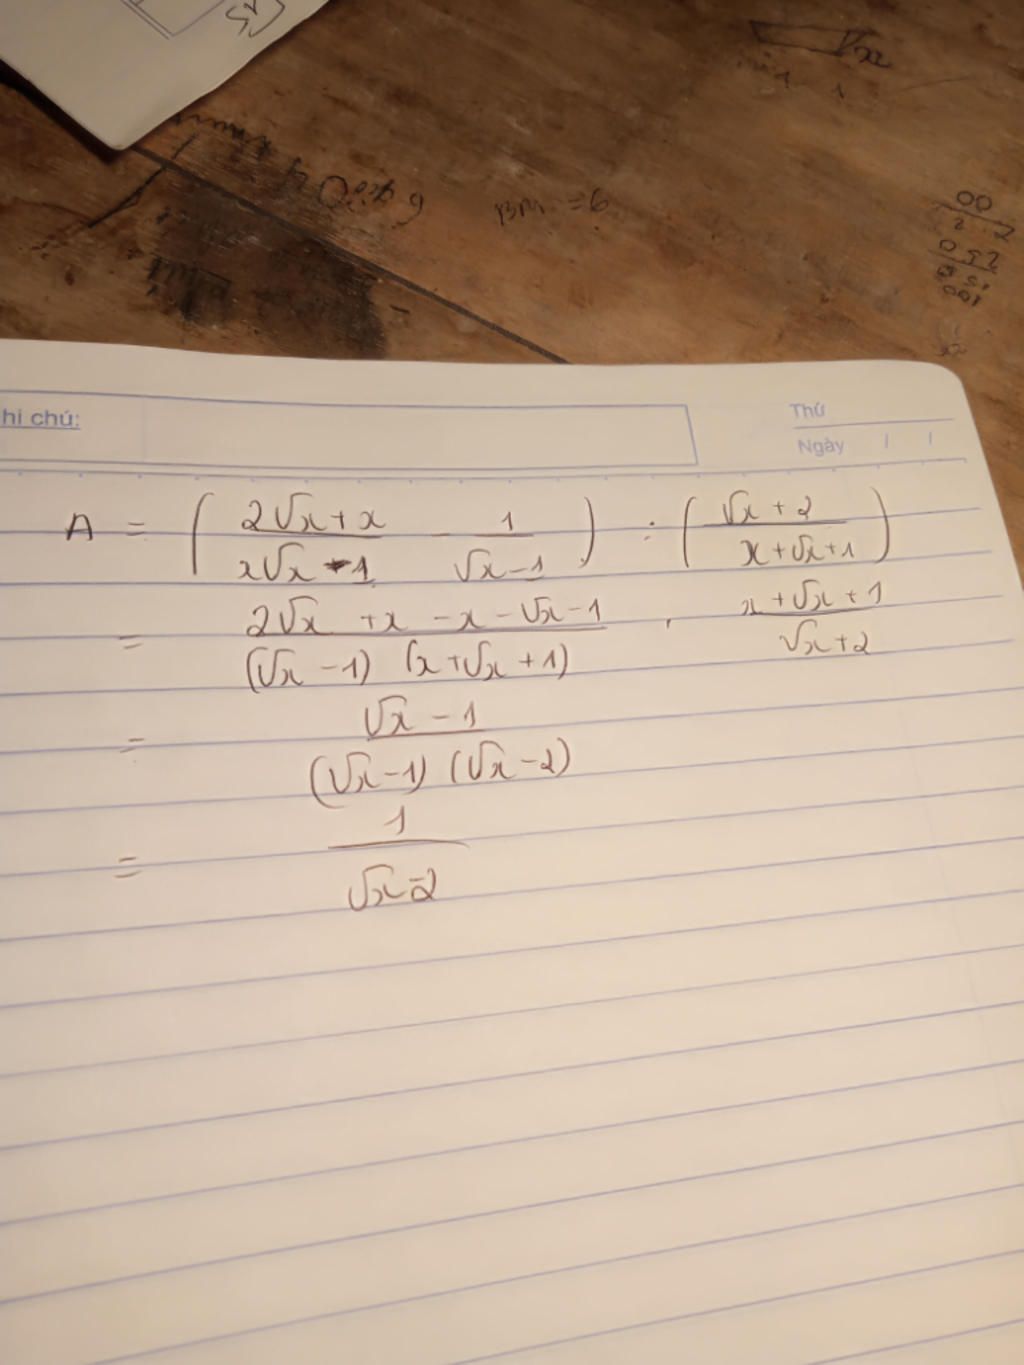 BM = 6
√x
00
hi chú:
Thứ
Ngày / /
A = ( (2√x + x)/(x√x - 1) - 1/(√x - 1) ) : ( (√x + 2)/(x + √x + 1) )
= (2√x + x - x - √x - 1)/((√x - 1) (x + √x + 1)) . (x + √x + 1)/(√x + 2)
= (√x - 1)/((√x - 1) (√x - 2))
= 1/(√x - 2)